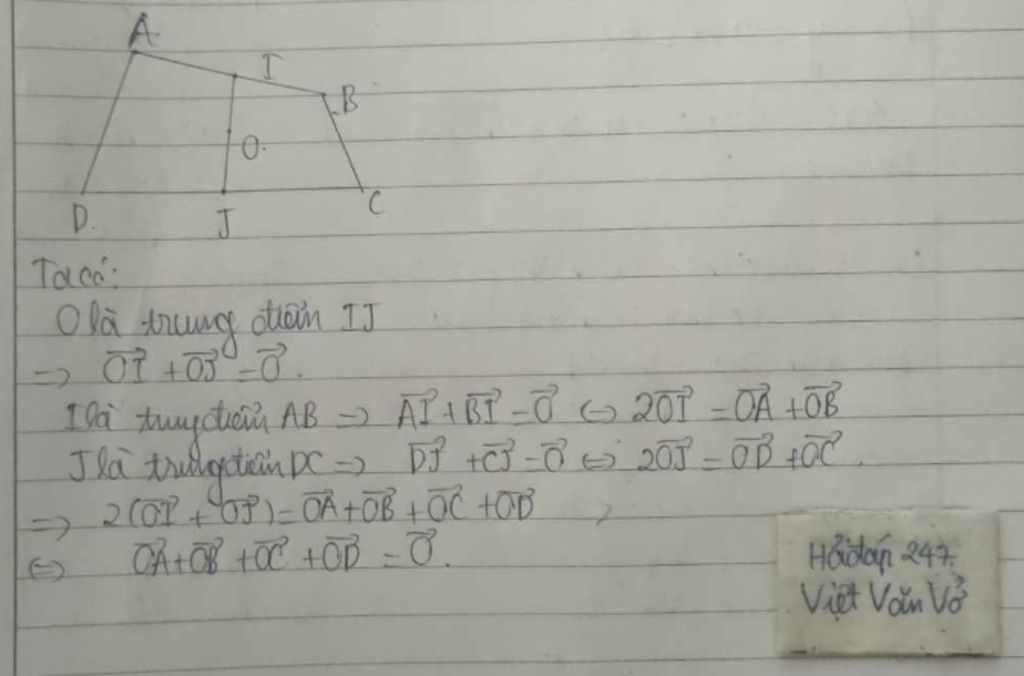 A
I
B
O.
D.
J
C
Ta có:
O là trung điểm IJ
=> \overrightarrow{OI} + \overrightarrow{OJ} = \overrightarrow{O}.
I là trung điểm AB => \overrightarrow{AI} + \overrightarrow{BI} = \overrightarrow{O} <=> 2\overrightarrow{OI} = \overrightarrow{OA} + \overrightarrow{OB}
J là trung điểm DC => \overrightarrow{DJ} + \overrightarrow{CJ} = \overrightarrow{O} <=> 2\overrightarrow{OJ} = \overrightarrow{OD} + \overrightarrow{OC}.
=> 2(\overrightarrow{OI} + \overrightarrow{OJ}) = \overrightarrow{OA} + \overrightarrow{OB} + \overrightarrow{OC} + \overrightarrow{OD}
<=> \overrightarrow{OA} + \overrightarrow{OB} + \overrightarrow{OC} + \overrightarrow{OD} = \overrightarrow{O}.
Hỏi đáp 247.
Việt Văn Vở